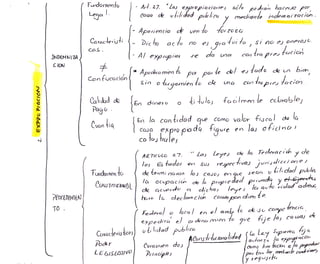 1. EXPROPIACION
INDEMNIZACION
Fundamento Legal.
- Art. 27. "Las expropiaciones sólo podrán hacerse por causa de utilidad pública y mediante indemnización.
Características.
- Apariencia de venta forzosa
- Dicho acto no es gratuito, si no es oneroso
- Al expropiar se da una contraprestación
≠ Confiscación
* Apoderamiento por parte del estado de un bien, sin otorgamiento de una contraprestación
Calidad de Pago
En dinero o titulos facilmente cobrables
Cuantia
En la cantidad que como valor fiscal de la cosa expropiada figure en las oficinas catastrales
PROCEDIMIENTO.
Fundamento CONSTITUCIONAL
ARTICULO 27. "Las leyes de la Federación y de los Estados en sus respectivas jurisdicciones determinaran los casos en que sea utilidad publica la ocupación de la propiedad privada
de acuerdo a dichas leyes la autoridad
la declaración correspondiente
Caracteristicas Poder LEGISLATIVO
Federal o local en el ambito de su competencia expedirá el ordenamiento que fije las causas de utilidad publica
Consagran dos Principios
Constitucionalidad
La Ley Suprema fija
autoriza la expropiación
como limitación a la propiedad
y requisitos